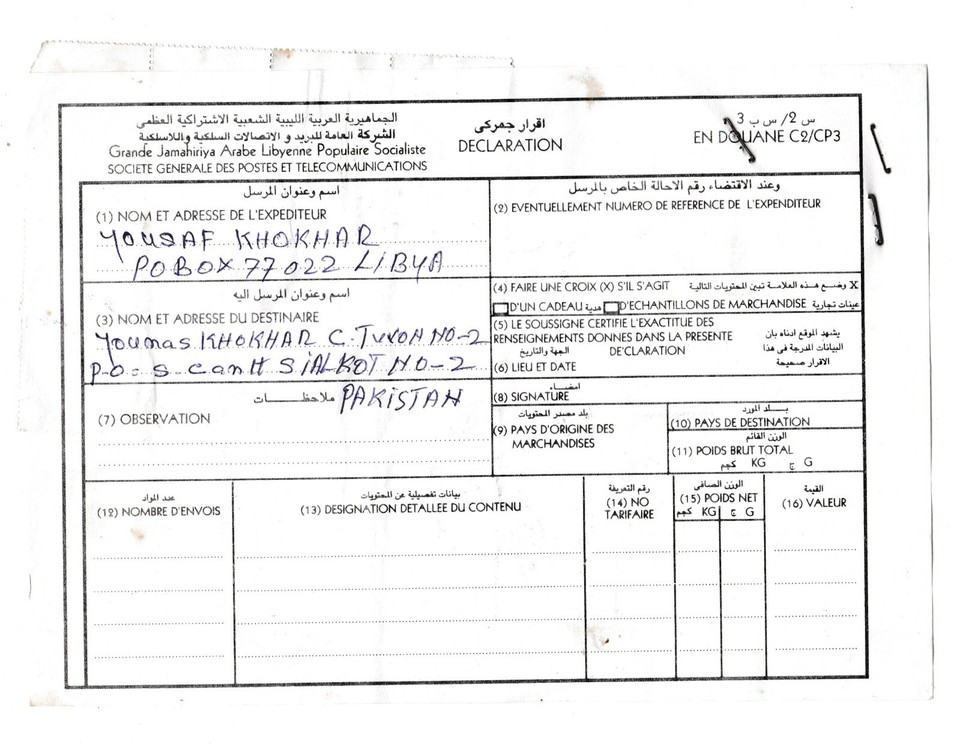 الجماهيرية العربية الليبية الشعبية الاشتراكية العظمى
الشركة العامة للبريد و الاتصالات السلكية واللاسلكية
Grande Jamahiriya Arabe Libyenne Populaire Socialiste
SOCIETE GENERALE DES POSTES ET TELECOMMUNICATIONS
اقرار جمركى
DECLARATION
س 2/ س ب 3
EN DOUANE C2/CP3
اسم وعنوان المرسل
(1) NOM ET ADRESSE DE L'EXPEDITEUR
YOUSAF KHOKHAR
POBOX 77022 LIBYA
وعند الاقتضاء رقم الاحالة الخاص بالمرسل
(2) EVENTUELLEMENT NUMERO DE REFERENCE DE L'EXPENDITEUR
اسم وعنوان المرسل اليه
(3) NOM ET ADRESSE DU DESTINAIRE
Younas KHOKHAR C. NO-2
P.O= S cantt SIALKOT NO-2
PAKISTAN
(4) FAIRE UNE CROIX (X) S'IL S'AGIT وضع هذه العلامة تبين المحتويات التالية X
D'UN CADEAU هدية D'ECHANTILLONS DE MARCHANDISE عينات تجارية
(5) LE SOUSSIGNE CERTIFIE L'EXACTITUDE DES
RENSEIGNEMENTS DONNES DANS LA PRESENTE
D'ECLARATION
يشهد الموقع ادناه بان
البيانات المدرجة فى هذا
الاقرار صحيحة
الجهة والتاريخ
(6) LIEU ET DATE
ملاحظات
(7) OBSERVATION
امضاء
(8) SIGNATURE
بلد مصدر المحتويات
(9) PAYS D'ORIGINE DES
MARCHANDISES
بلد المورد
(10) PAYS DE DESTINATION
الوزن القائم
(11) POIDS BRUT TOTAL
كجم KG ج G
عدد المواد
(12) NOMBRE D'ENVOIS
بيانات تفصيلية عن المحتويات
(13) DESIGNATION DETALLEE DU CONTENU
رقم التعريفة
(14) NO
TARIFAIRE
الوزن الصافى
(15) POIDS NET
كجم KG ج G
القيمة
(16) VALEUR